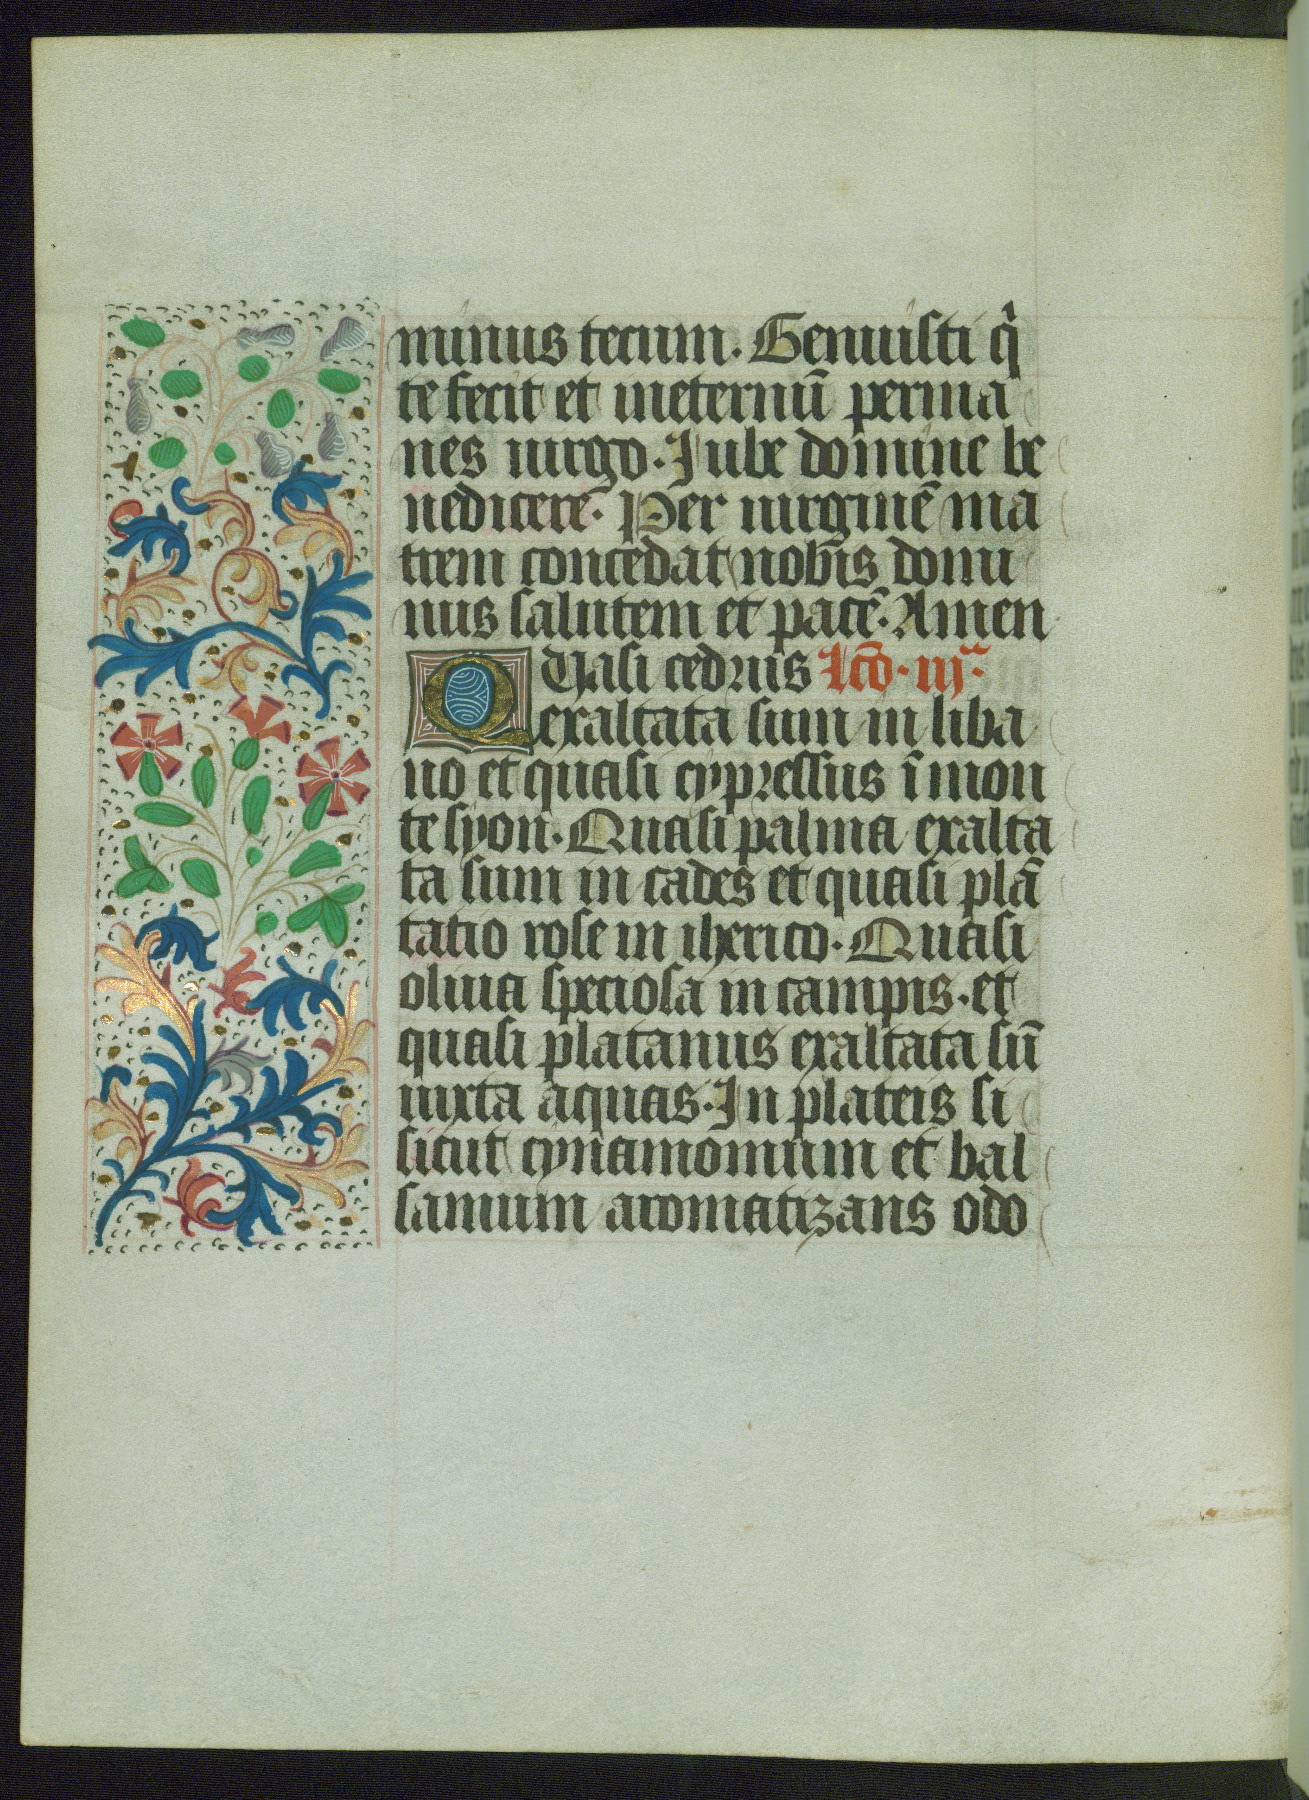 minus tecum. Genuisti q̄
te fecit et ineternū perma
nes uirgo. Jube domine be
nedicere. Per uirginē ma
trem concedat nobis domi
nus salutem et pacē. Amen
Quasi cedrus Lc̄o. iijª.
exaltata sum in liba
no et quasi cypressus ī mon
te syon. Quasi palma exalta
ta sum in cades et quasi plā
tatio rose in iherico. Quasi
oliua speciosa in campis. et
quasi platanus exaltata sū
iuxta aquas. In plateis si
sicut cynamomum et bal
samum aromatizans odo